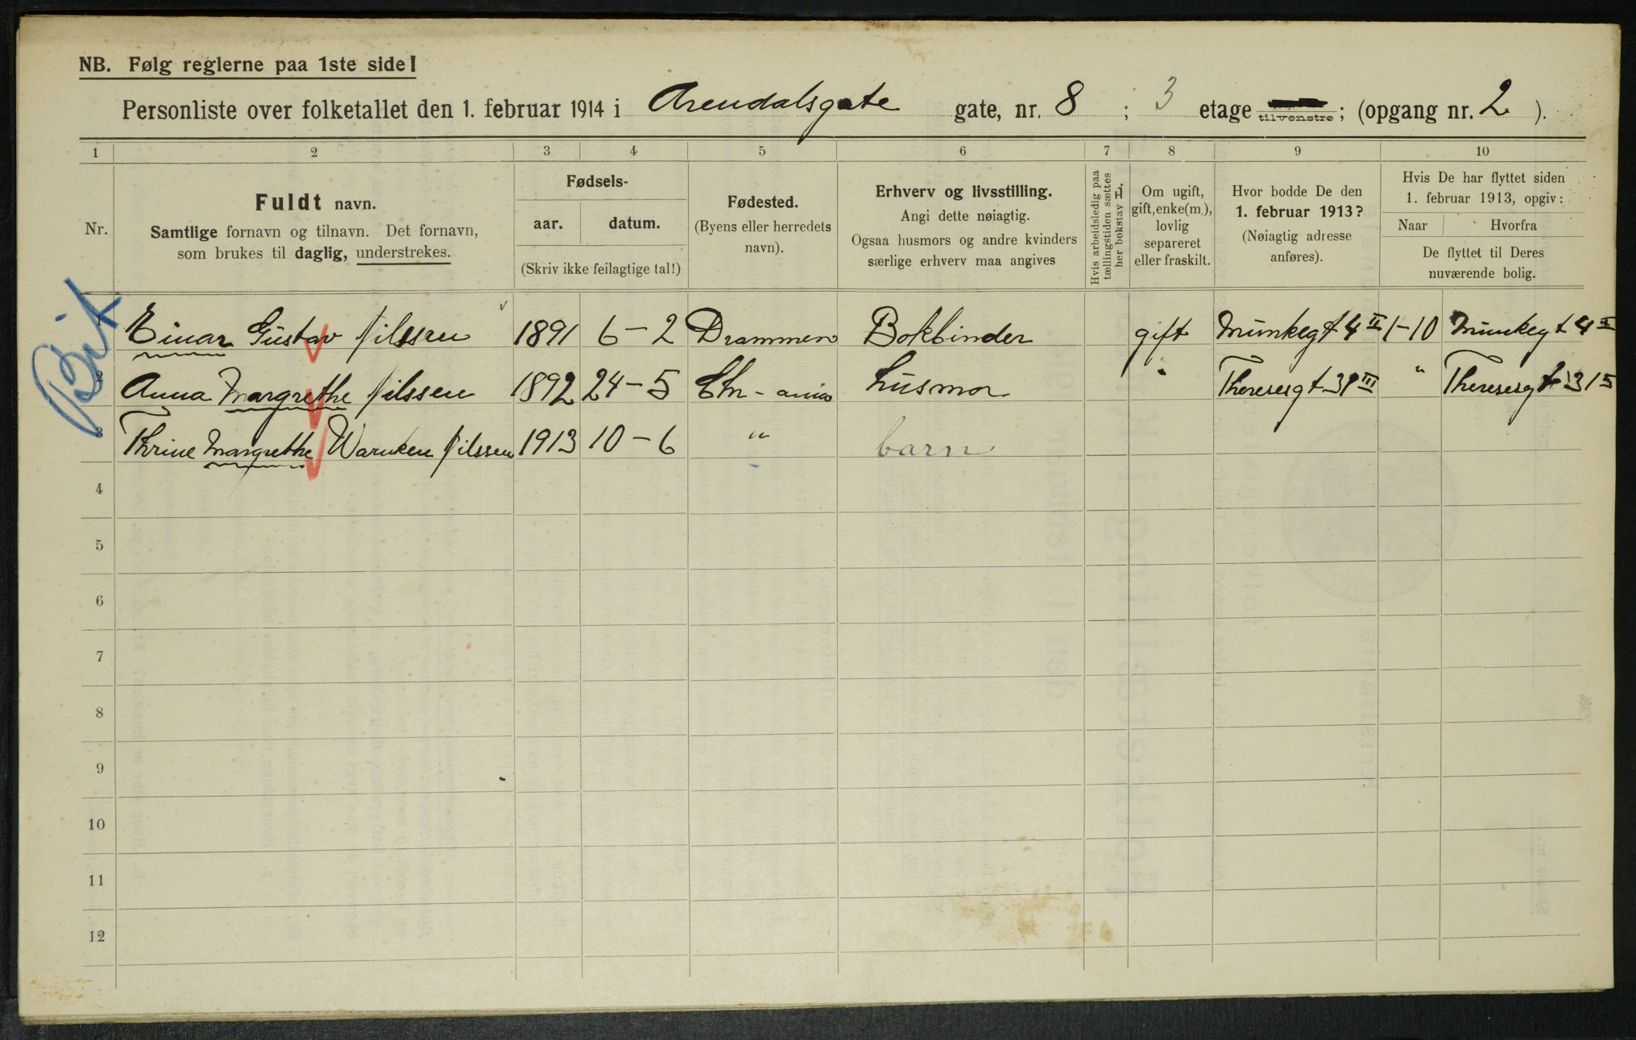 NB. Følg reglerne paa 1ste side!
Personliste over folketallet den 1. februar 1914 i Arendalsgate gate, nr. 8 ; 3 etage tilvenstre; (opgang nr. 2 ).
1 2 3 4 5 6 7 8 9 10
Nr.
Fuldt navn.
Samtlige fornavn og tilnavn. Det fornavn,
som brukes til daglig, understrekes.
Fødsels-
aar. datum.
(Skriv ikke feilagtige tal!)
Fødested.
(Byens eller herredets
navn).
Erhverv og livsstilling.
Angi dette nøiagtig.
Ogsaa husmors og andre kvinders
særlige erhverv maa angives
Hvis arbeidsledig paa
tællingstiden sættes
her bokstav L.
Om ugift,
gift, enke(m.),
lovlig
separeret
eller fraskilt.
Hvor bodde De den
1. februar 1913?
(Nøiagtig adresse
anføres).
Hvis De har flyttet siden
1. februar 1913, opgiv:
Naar Hvorfra
De flyttet til Deres
nuværende bolig.
Einar Gustav Nilssen 1891 6-2 Drammen Bokbinder gift Munkegt 4 II 1-10 Munkegt 4 II
Anna Margrethe Nilssen 1892 24-5 Chr-ania husmor " Theresesgt 39 III " Theresesgt
3 Thrine Margrethe Warnken Nilssen 1913 10-6 " barn
4
5
6
7
8
9
10
11
12